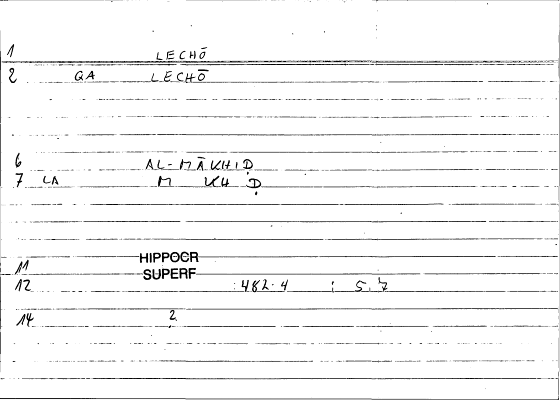 1 LECHŌ
2 QA LECHŌ
6 AL-MĀKHIḌ
7 LA M KH Ḍ
11 HIPPOCR
SUPERF
12 :482.4 : 5.7
14 2